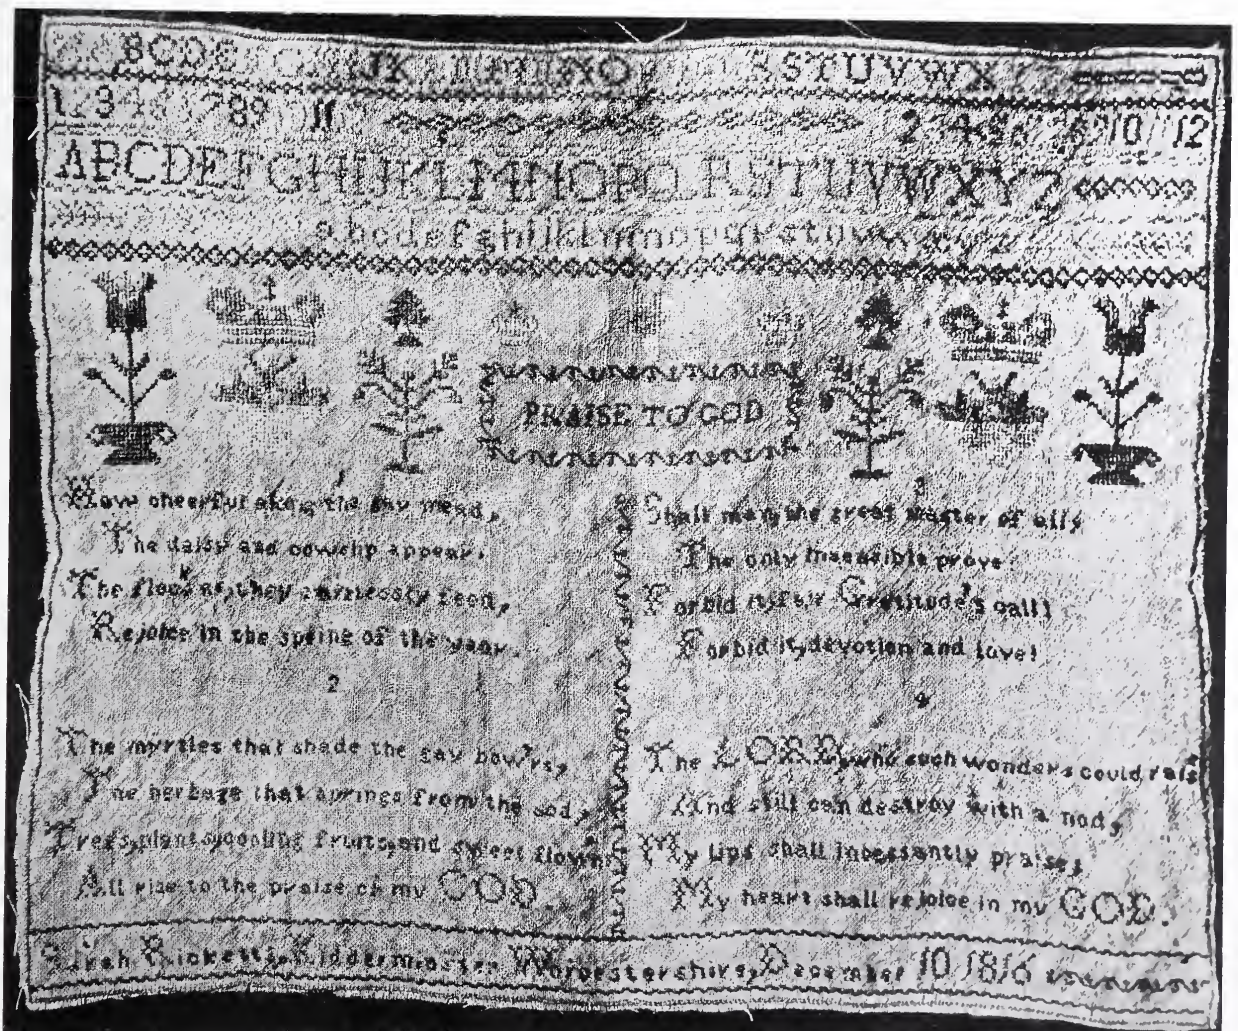 BCDE IJK NO S T U V W X
1 3 789 11 2 4 5 6 10 11 12
ABCDEFGHIJKLMNOPQRSTUVWXYZ
abcdefghijklmnopqrstuvw
PRAISE TO GOD
1
How cheerful along the gay mead,
The daisy and cowslip appear.
The flocks as they carelessly feed,
Rejoice in the spring of the year.
2
The myrtles that shade the gay bow'rs,
The herbage that springs from the sod,
Trees, plants, cooling fruits, and sweet flow'rs
All rise to the praise of my GOD.
3
Shall man, the great master of all,
The only insensible prove.
Forbid it, fair Gratitude's call!
Forbid it, devotion and love!
4
The LORD, who such wonders could raise
And still can destroy with a nod,
My lips shall incessantly praise,
My heart shall rejoice in my GOD.
Sarah Ricketts, Kidderminster Worcestershire, December 10 1816